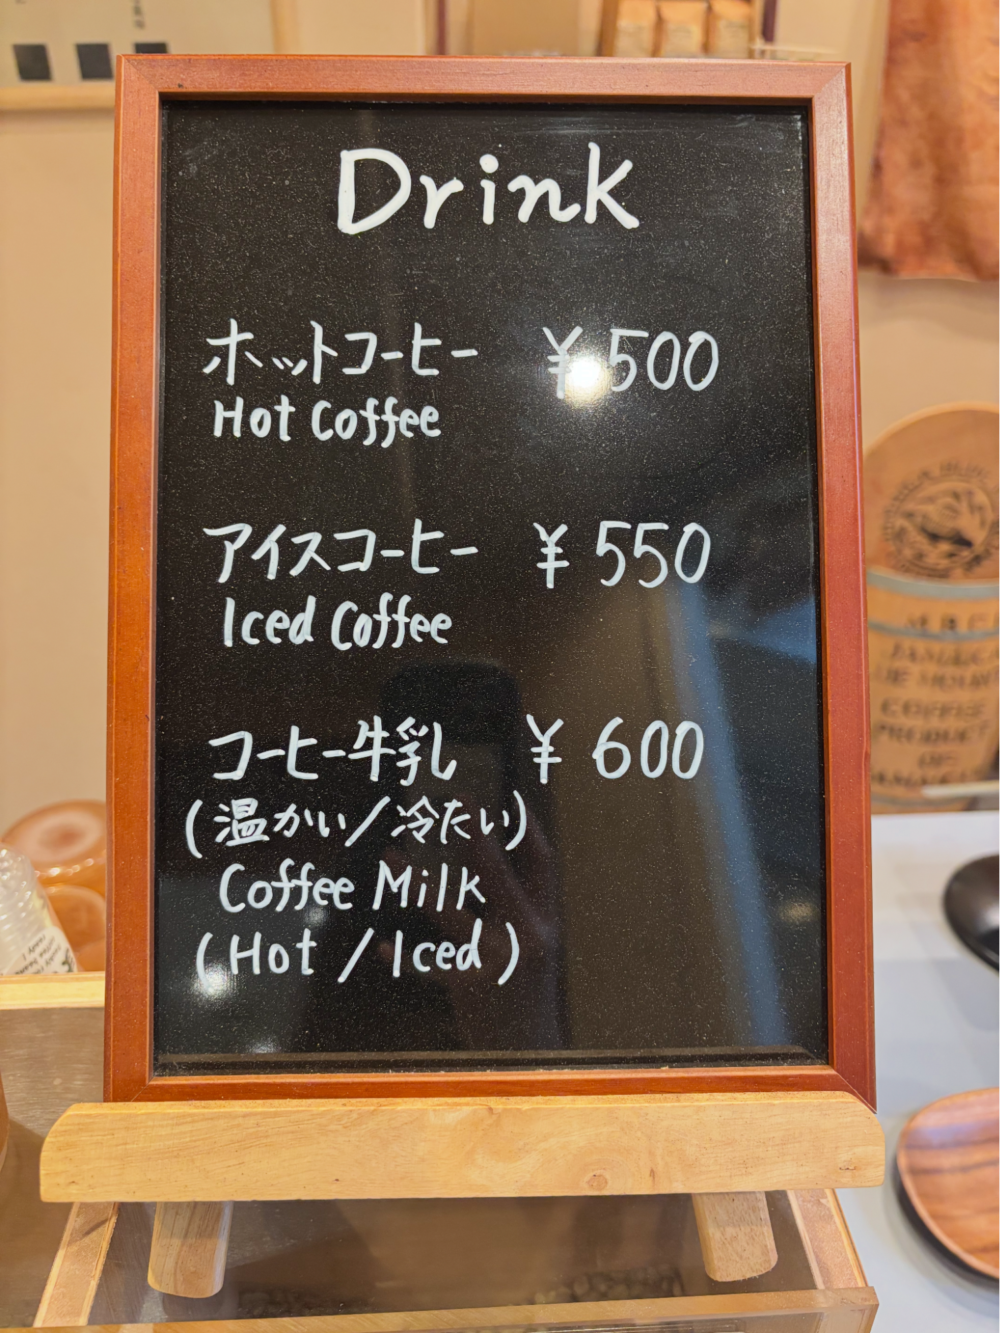 Drink
ホットコーヒー ¥500
Hot Coffee
アイスコーヒー ¥550
Iced Coffee
コーヒー牛乳 ¥600
(温かい/冷たい)
Coffee Milk
(Hot / Iced)
JAMAICA
COFFEE
PRODUCT
OF